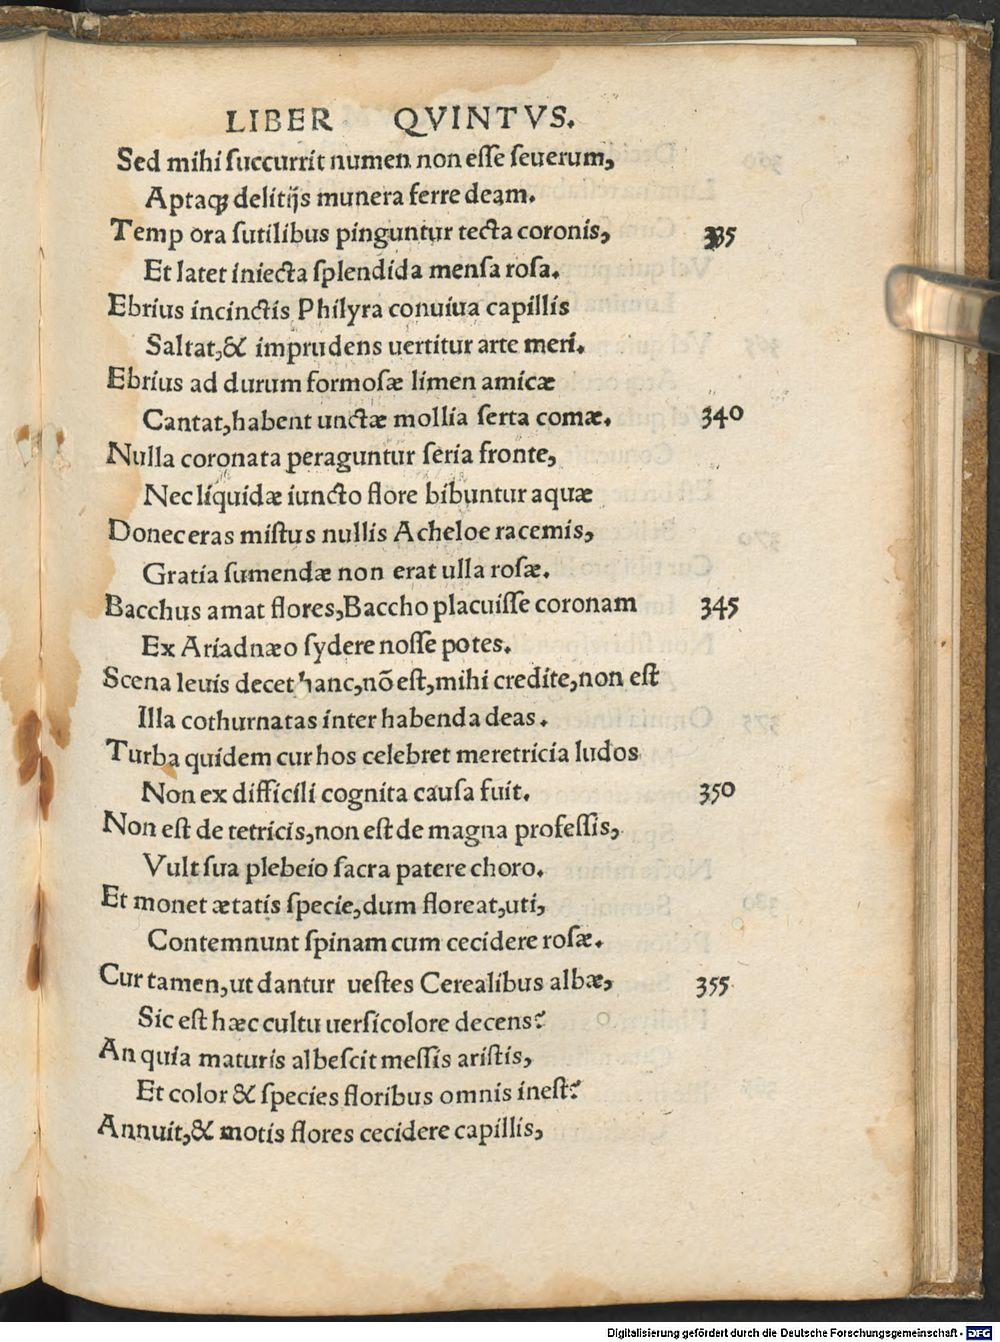 LIBER QVINTVS.
Sed mihi ſuccurrit numen non eſſe ſeuerum,
Aptaqꝫ delitijs munera ferre deam.
Temp ora ſutilibus pinguntur tecta coronis, 335
Et latet iniecta ſplendida menſa roſa.
Ebrius incinctis Philyra conuiua capillis
Saltat,& imprudens uertitur arte meri.
Ebrius ad durum formoſæ limen amicæ
Cantat,habent unctæ mollia ſerta comæ. 340
Nulla coronata peraguntur ſeria fronte,
Nec liquidæ iuncto flore bibuntur aquæ
Donec eras miſtus nullis Acheloe racemis,
Gratia ſumendæ non erat ulla roſæ.
Bacchus amat flores,Baccho placuiſſe coronam 345
Ex Ariadnæo ſydere noſſe potes.
Scena leuis decet hanc,nō eſt,mihi credite,non eſt
Illa cothurnatas inter habenda deas.
Turba quidem cur hos celebret meretricia ludos
Non ex difficili cognita cauſa fuit. 350
Non eſt de tetricis,non eſt de magna profeſſis,
Vult ſua plebeio ſacra patere choro.
Et monet ætatis ſpecie,dum floreat,uti,
Contemnunt ſpinam cum cecidere roſæ.
Cur tamen,ut dantur ueſtes Cerealibus albæ, 355
Sic eſt hæc cultu uerſicolore decens?
An quia maturis albeſcit meſſis ariſtis,
Et color & ſpecies floribus omnis ineſt?
Annuit,& motis flores cecidere capillis,
Digitalisierung gefördert durch die Deutsche Forschungsgemeinschaft - DFG